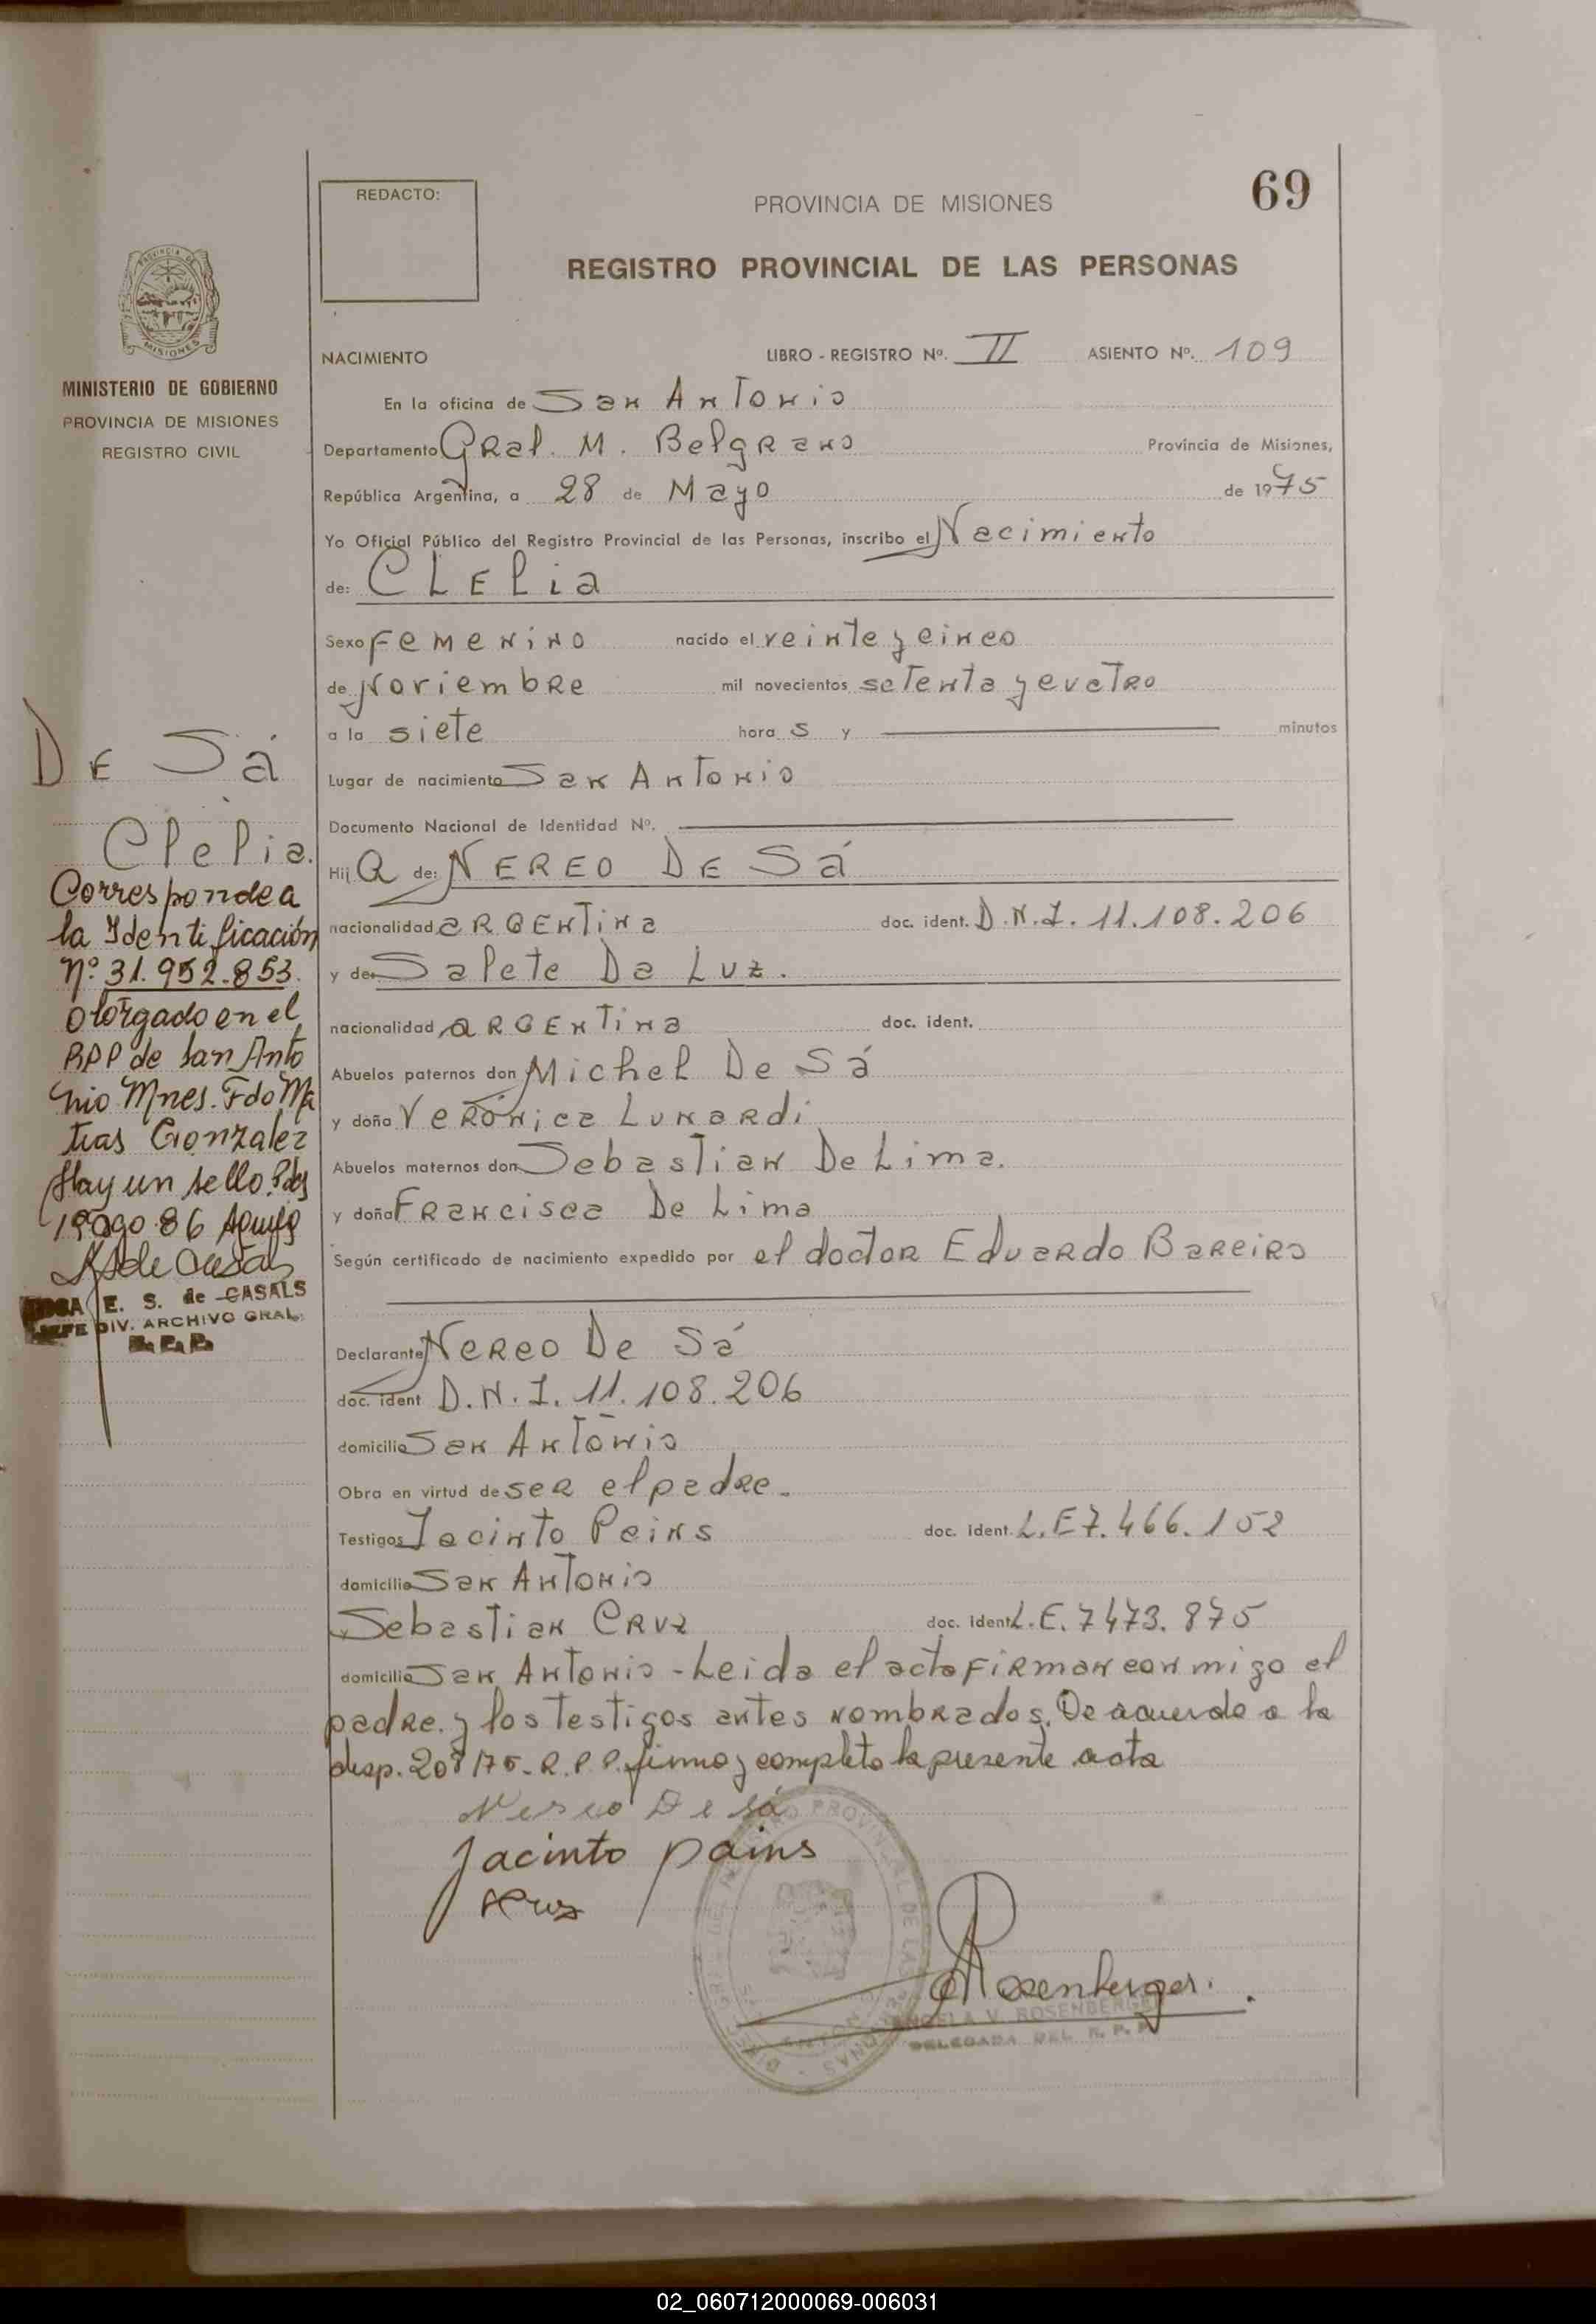 69
REDACTO:
PROVINCIA DE MISIONES
REGISTRO PROVINCIAL DE LAS PERSONAS
PROVINCIA DE
MISIONES
MINISTERIO DE GOBIERNO
PROVINCIA DE MISIONES
REGISTRO CIVIL
NACIMIENTO LIBRO - REGISTRO Nº. II ASIENTO Nº. 109
En la oficina de San Antonio
Departamento Gral. M. Belgrano Provincia de Misiones,
República Argentina, a 28 de Mayo de 1975
Yo Oficial Público del Registro Provincial de las Personas, inscribo el Nacimiento
de: CLELia
Sexo Femenino nacido el veinte y cinco
de Noviembre mil novecientos setenta y cuatro
a la siete hora s y minutos
Lugar de nacimiento San Antonio
Documento Nacional de Identidad Nº.
Hij a de: NEREO DE Sá
nacionalidad ARGENTINA doc. ident. D.N.I. 11.108.206
y de: Salete Da Luz.
nacionalidad ARGENTINA doc. ident.
Abuelos paternos don Michel De Sá
y doña Verónica Lunardi
Abuelos maternos don Sebastian De Lima.
y doña Francisca De Lima
Según certificado de nacimiento expedido por el doctor Eduardo Bareiro
Declarante Nereo De Sá
doc. ident D.N.I. 11.108.206
domicilio San Antonio
Obra en virtud de ser el padre.
Testigos Jacinto Peins doc. ident. L.E 7.466.152
domicilio San Antonio
Sebastian Cruz doc. ident L.E. 7473.875
domicilio San Antonio - Leida el acta firman conmigo el
padre y los testigos antes nombrados. De acuerdo a la
disp. 208/75. R.P.P. firmo y completo la presente acta
Nereo De Sá
Jacinto pains
Cruz
Rosenberger.
ANGELA V. ROSENBERGER
DELEGADA DEL R.P.P.
DE Sá
Clelia.
Corresponde a
la Identificación
Nº 31.952.853.
otorgado en el
RPP de San Anto
nio Mnes. Fdo Ma
tias Gonzalez
Hay un sello. Pdas
19 ago. 86
E. S. de CASALS
JEFE DIV. ARCHIVO GRAL.
R.P.P.
02_060712000069-006031